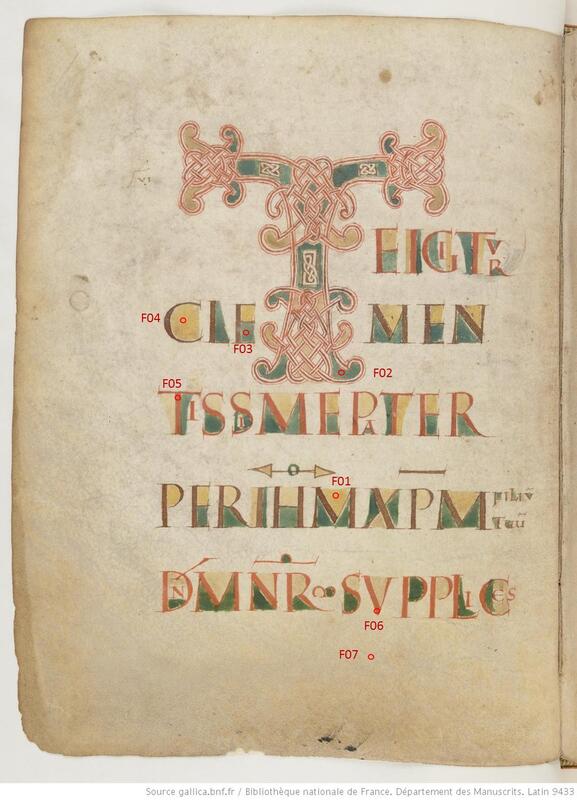 TEIGITVR
F04 CLE MEN
F03
F02
F05
TISSIMEPATER
F01
PERIHMXPM filiū
tuū
DNMNR SVPPLICES
F06
F07
Source gallica.bnf.fr / Bibliothèque nationale de France. Département des Manuscrits. Latin 9433